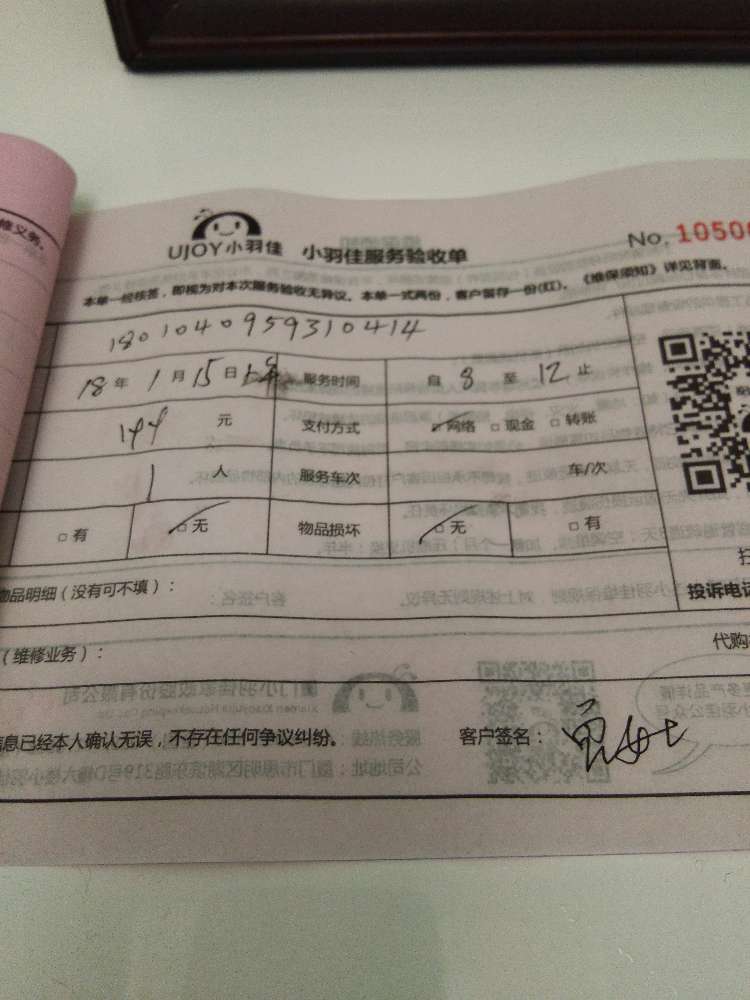 修义务。
UJOY小羽佳 小羽佳服务验收单 No. 10500
本单一经核签，即视为对本次服务验收无异议。本单一式两份，客户留存一份(红)。《维保须知》详见背面。
1801040959310414
18年1月15日 服务时间 自8至12止
144元 支付方式 网络 现金 转账
1人 服务车次 车/次
有 无 物品损坏 无 有
物品明细（没有可不填）： 投诉电话
（维修业务）： 代购
信息已经本人确认无误，不存在任何争议纠纷。 客户签名：